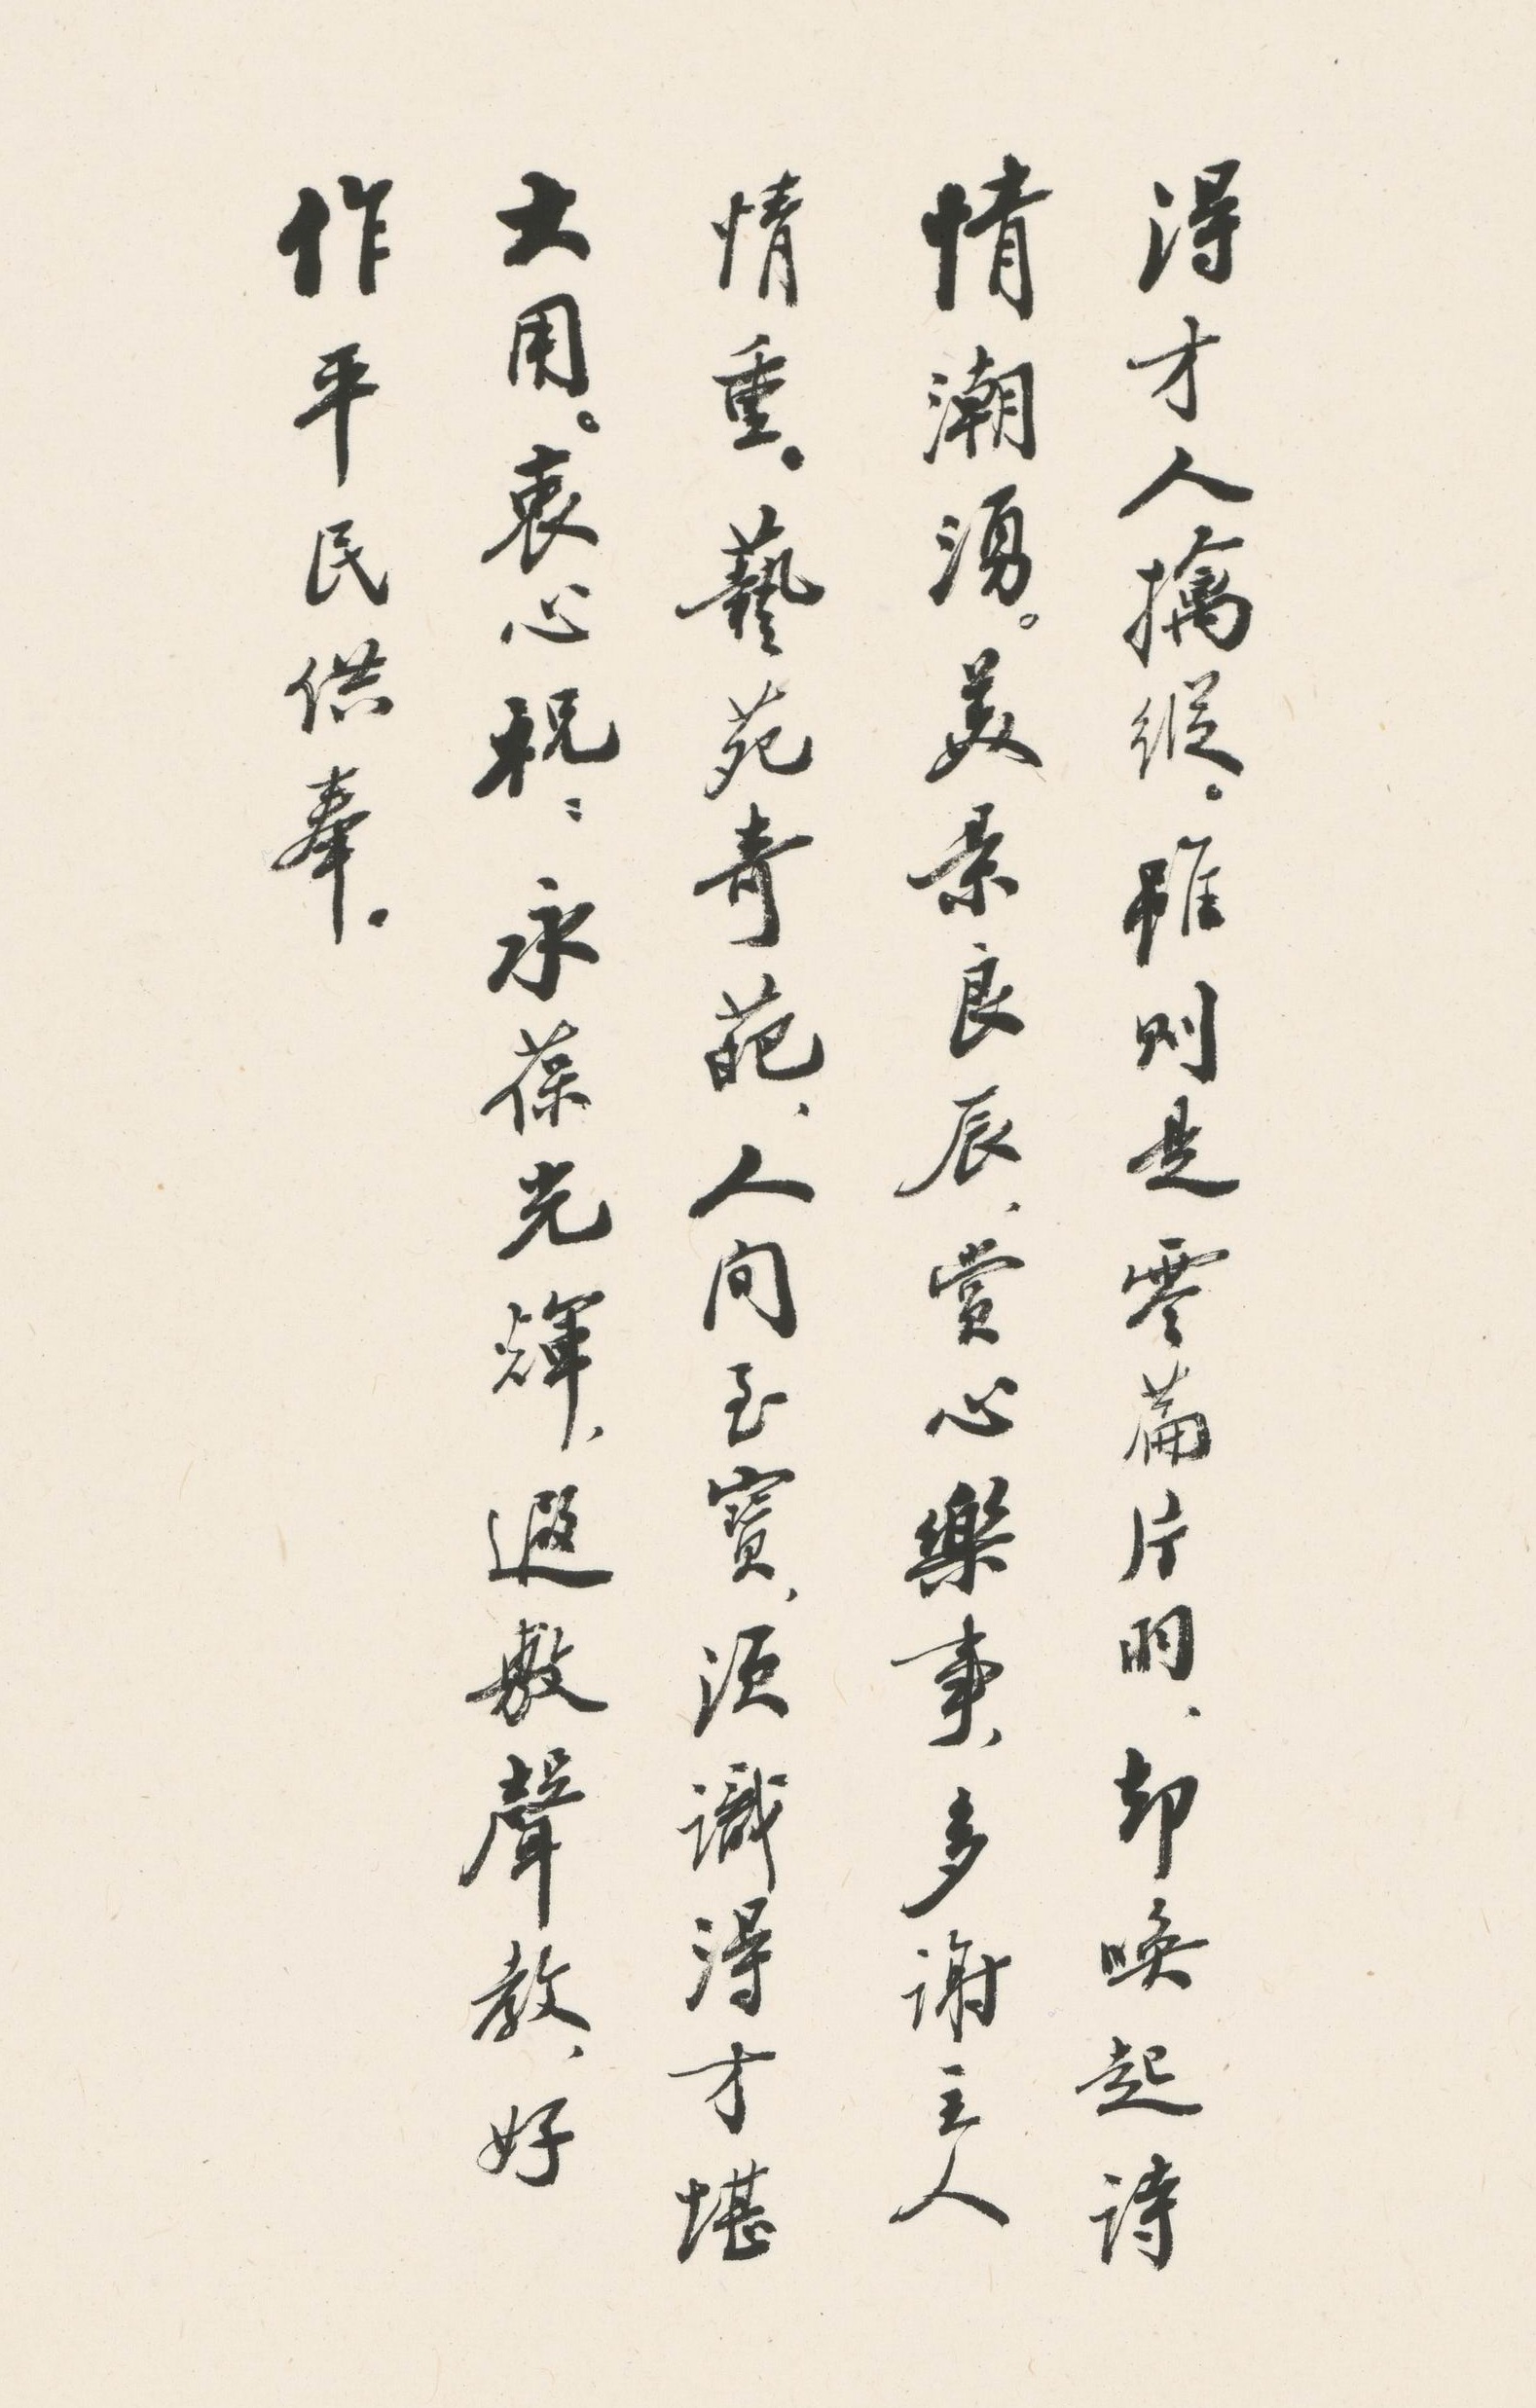 得才人擒縱。雖則是零篇片羽、却喚起詩
情潮湧。美景良辰、賞心樂事、多謝主人
情重。藝苑奇葩、人間至寶、須識得才堪
大用。衷心祝：永葆光輝、遐敷聲教、好
作平民供奉。